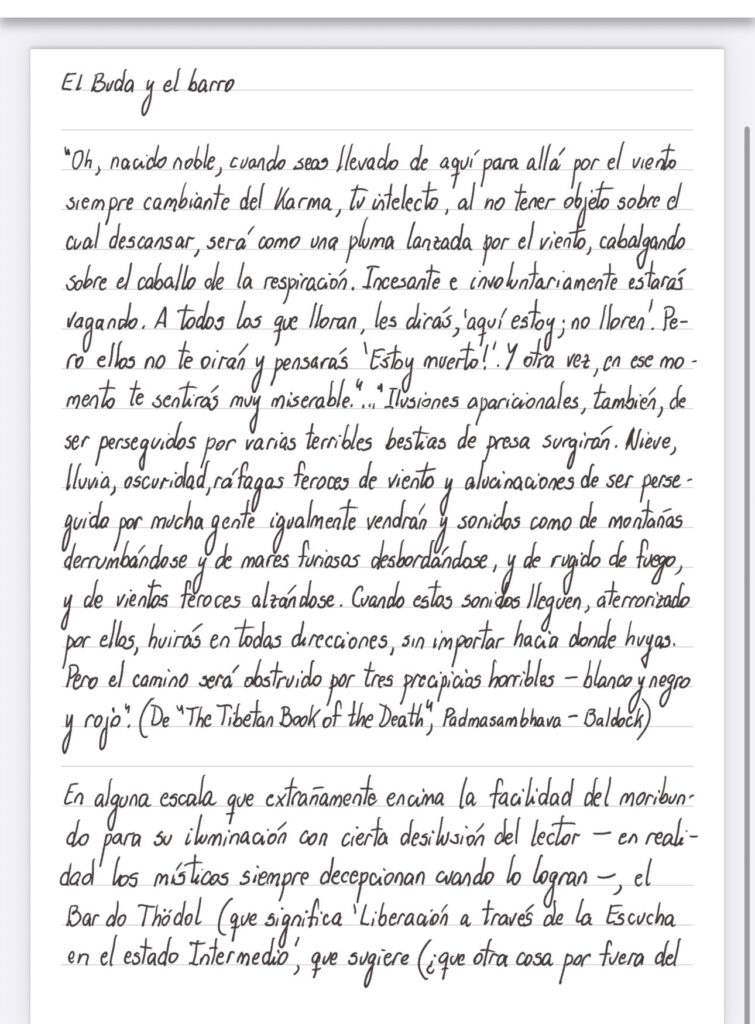 El Buda y el barro
"Oh, nacido noble, cuando seas llevado de aquí para allá por el viento
siempre cambiante del Karma, tu intelecto, al no tener objeto sobre el
cual descansar, será como una pluma lanzada por el viento, cabalgando
sobre el caballo de la respiración. Incesante e involuntariamente estarás
vagando. A todos los que lloran, les dirás, 'aquí estoy; no lloren'. Pe-
ro ellos no te oirán y pensarás 'Estoy muerto!'. Y otra vez, en ese mo-
mento te sentirás muy miserable."..."Ilusiones aparicionales, también, de
ser perseguidos por varias terribles bestias de presa surgirán. Nieve,
lluvia, oscuridad, ráfagas feroces de viento y alucinaciones de ser perse-
guido por mucha gente igualmente vendrán y sonidos como de montañas
derrumbándose y de mares furiosos desbordándose, y de rugido de fuego,
y de vientos feroces alzándose. Cuando estos sonidos lleguen, aterrorizado
por ellos, huirás en todas direcciones, sin importar hacia donde huyas.
Pero el camino será obstruido por tres precipicios horribles - blanco y negro
y rojo". (De "The Tibetan Book of the Death", Padmasambhava - Baldock)
En alguna escala que extrañamente encima la facilidad del moribun-
do para su iluminación con cierta desilusión del lector - en reali-
dad los místicos siempre decepcionan cuando lo logran -, el
Bar do Thödol (que significa 'Liberación a través de la Escucha
en el estado Intermedio', que sugiere (¿que otra cosa por fuera del